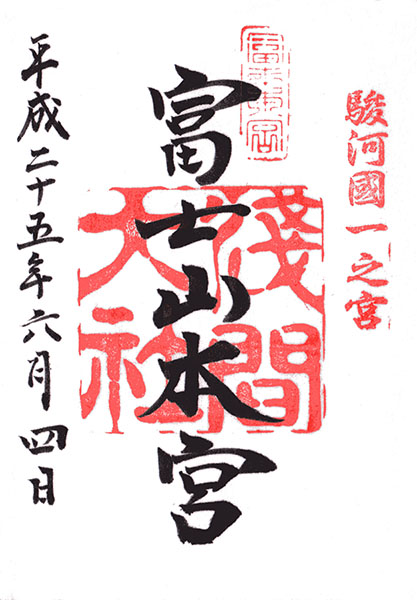 駿河國一之宮
富士山本宮
淺間大社
平成二十五年六月四日